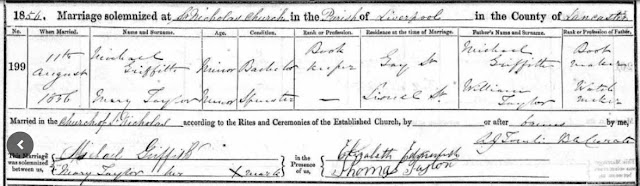 1856. Marriage solemnized at St Nicholas Church in the Parish of Liverpool in the County of Lancaster
No. When Married. Name and Surname. Age. Condition. Rank or Profession. Residence at the time of Marriage. Father's Name and Surname. Rank or Profession of Father.
199 11th August 1856 Michael Griffith Minor Bachelor Book keeper Gay St Michael Griffith Book maker
Mary Taylor Minor Spinster — Lionel St. William Taylor Watch maker
Married in the Church of St Nicholas according to the Rites and Ceremonies of the Established Church, by or after Banns by me,
This Marriage was solemnized between us, Michael Griffith
Mary Taylor her X mark
in the Presence of us, Elizabeth
Thomas